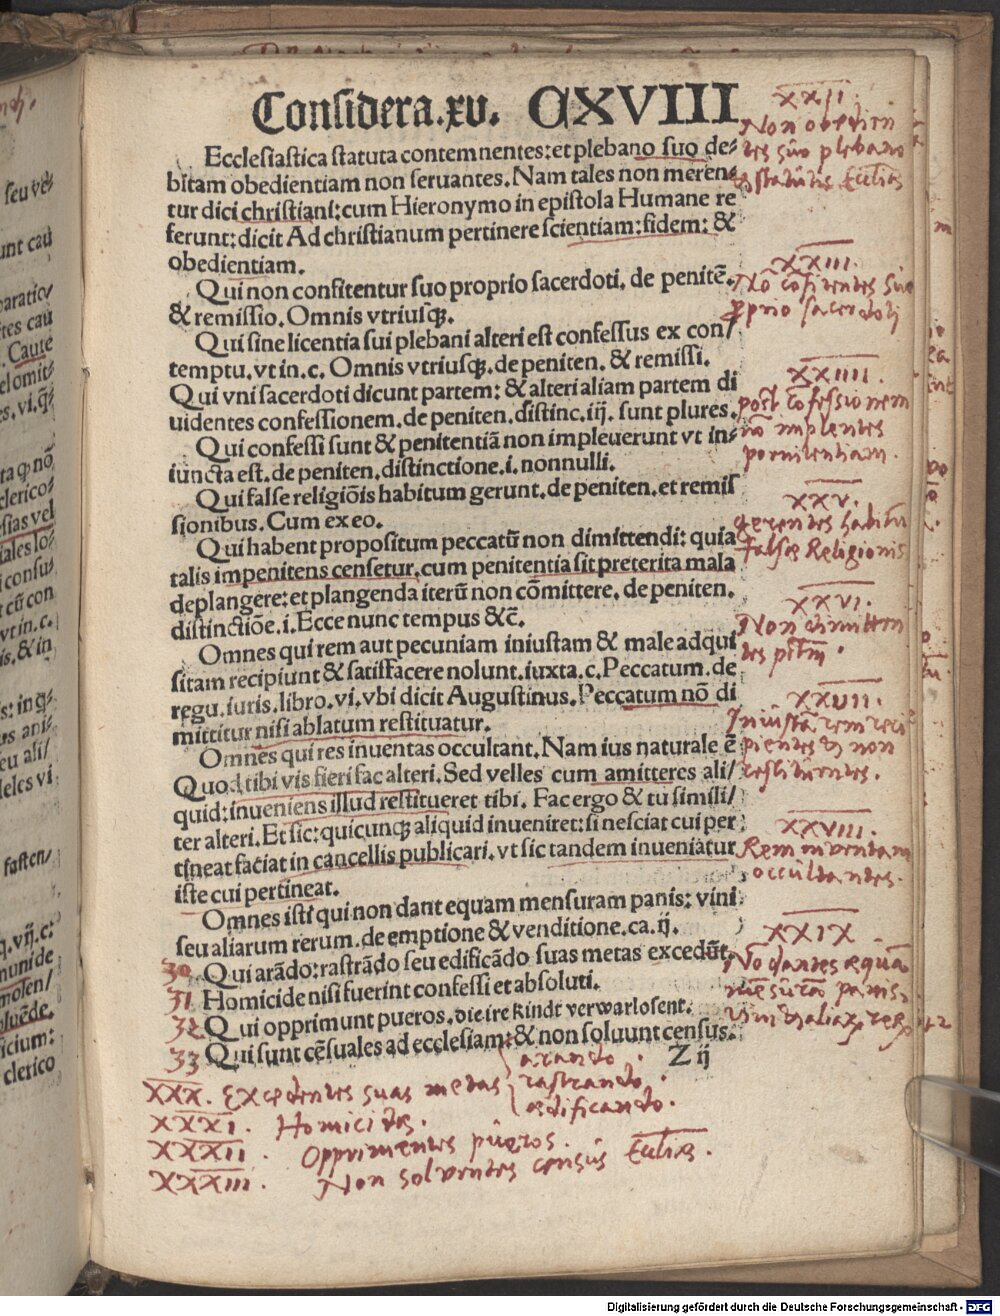 Considera.xv. CXVIII
Ecclesiastica statuta contemnentes: et plebano suo de⸗
bitam obedientiam non seruantes. Nam tales non meren⸗
tur dici christiani: cum Hieronymo in epistola Humane re
ferunt: dicit Ad christianum pertinere scientiam: fidem: &
obedientiam.
Qui non confitentur suo proprio sacerdoti. de penitē.
& remissio. Omnis vtriusqꝫ.
Qui sine licentia sui plebani alteri est confessus ex con/
temptu. vt in. c. Omnis vtriusqꝫ. de peniten. & remissi.
Qui vni sacerdoti dicunt partem: & alteri aliam partem di
uidentes confessionem. de peniten. distinc. iij. sunt plures.
Qui confessi sunt & penitentiā non impleuerunt vt in⸗
iuncta est. de peniten. distinctione. i. nonnulli.
Qui false religiōis habitum gerunt. de peniten. et remis
sionibus. Cum ex eo.
Qui habent propositum peccatū non dimittendi: quia
talis impenitens censetur. cum penitentia sit preterita mala
deplangere: et plangenda iterū non cōmittere. de peniten.
distinctiōe. i. Ecce nunc tempus &c̄.
Omnes qui rem aut pecuniam iniustam & male adqui
sitam recipiunt & satisfacere nolunt. iuxta. c. Peccatum. de
regu. iuris. libro. vi. vbi dicit Augustinus. Peccatum nō di
mittitur nisi ablatum restituatur.
Omnes qui res inuentas occultant. Nam ius naturale ē
Quod tibi vis fieri fac alteri. Sed velles cum amitteres ali/
quid: inueniens illud restitueret tibi. Fac ergo & tu simili/
ter alteri. Et sic: quicunqꝫ aliquid inueniret: si nesciat cui per
tineat faciat in cancellis publicari. vt sic tandem inueniatur
iste cui pertineat.
Omnes isti qui non dant equam mensuram panis: vini
seu aliarum rerum. de emptione & venditione. ca. ij.
30 Qui arādo: rastrādo seu edificādo suas metas excedūt.
31 Homicide nisi fuerint confessi et absoluti.
32 Qui opprimunt pueros. die ire kindt verwarlosent.
33 Qui sunt cēsuales ad ecclesiam: & non soluunt census.
Z ij
XXII.
Non obedien
tes suo plebano
& statutis Eccliæ
XXIII.
Nō cōfitentes suo
ꝓprio sacerdoti
XXIIII.
post cōfessionem
nō implentes
poenitentiam.
XXV.
gerentes habitū
falsæ Religionis
XXVI.
Non dimitten
tes pctm̄.
XXVII.
Iniustā rem reci
pientes & non
restituentes.
XXVIII.
Rem inventam
occultantes.
XXIX.
Nō dantes æquā
mēsurā panis,
vini & aliaꝝ reꝝ
XXX. Excedentes suas metas
arando.
rastrando.
ædificando.
XXXI. Homicidæ.
XXXII. Opprimentes pueros.
XXXIII. Non solventes census Eccliæ.
seu ve⸗
unt caū
tes caū
. Caute
el omit⸗
es. vi. q̄⸗
ta q nō
clerico⸗
sias vel
iales lo⸗
i consu⸗
t cū con
vt in. c.
is. & in
s: in q̄⸗
us ani⸗
eu ali/
deles vi
fasten/
q. vij. c:
muni de
molen/
oluēde.
icium:
clerico
Digitalisierung gefördert durch die Deutsche Forschungsgemeinschaft - DFG